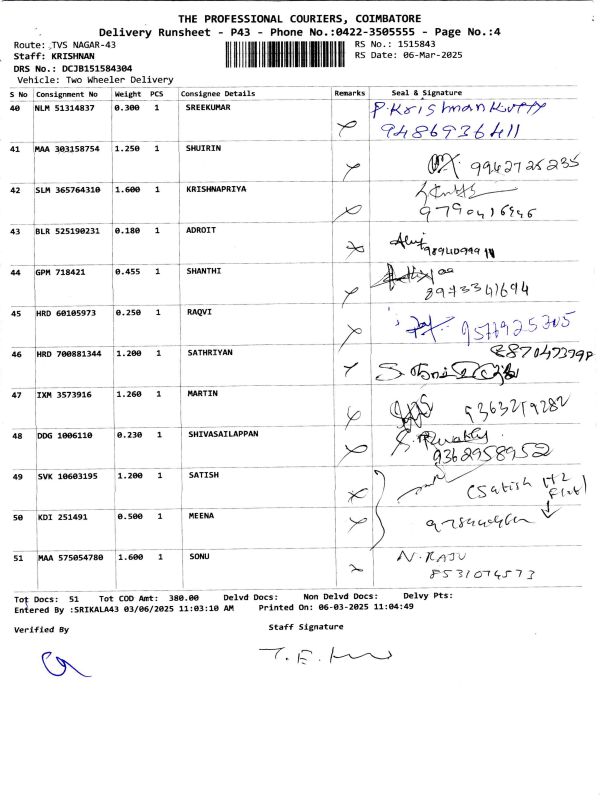 THE PROFESSIONAL COURIERS, COIMBATORE
Delivery Runsheet - P43 - Phone No.:0422-3505555 - Page No.:4
Route: TVS NAGAR-43 RS No.: 1515843
Staff: KRISHNAN RS Date: 06-Mar-2025
DRS No.: DCJB151584304
Vehicle: Two Wheeler Delivery
S No Consignment No Weight PCS Consignee Details Remarks Seal & Signature
40 NLM 51314837 0.300 1 SREEKUMAR P.Krishnankutty
9486936411
41 MAA 303158754 1.250 1 SHUIRIN
9942725235
42 SLM 365764310 1.600 1 KRISHNAPRIYA
43 BLR 525190231 0.180 1 ADROIT
44 GPM 718421 0.455 1 SHANTHI
8973341694
45 HRD 60105973 0.250 1 RAQVI
46 HRD 700881344 1.200 1 SATHRIYAN
47 IXM 3573916 1.260 1 MARTIN
9363219282
48 DDG 1006110 0.230 1 SHIVASAILAPPAN
9362958952
49 SVK 10603195 1.200 1 SATISH (Satish
50 KDI 251491 0.500 1 MEENA
51 MAA 575054780 1.600 1 SONU N.RAJU
8531074573
Tot Docs: 51 Tot COD Amt: 380.00 Delvd Docs: Non Delvd Docs: Delvy Pts:
Entered By :SRIKALA43 03/06/2025 11:03:10 AM Printed On: 06-03-2025 11:04:49
Verified By Staff Signature